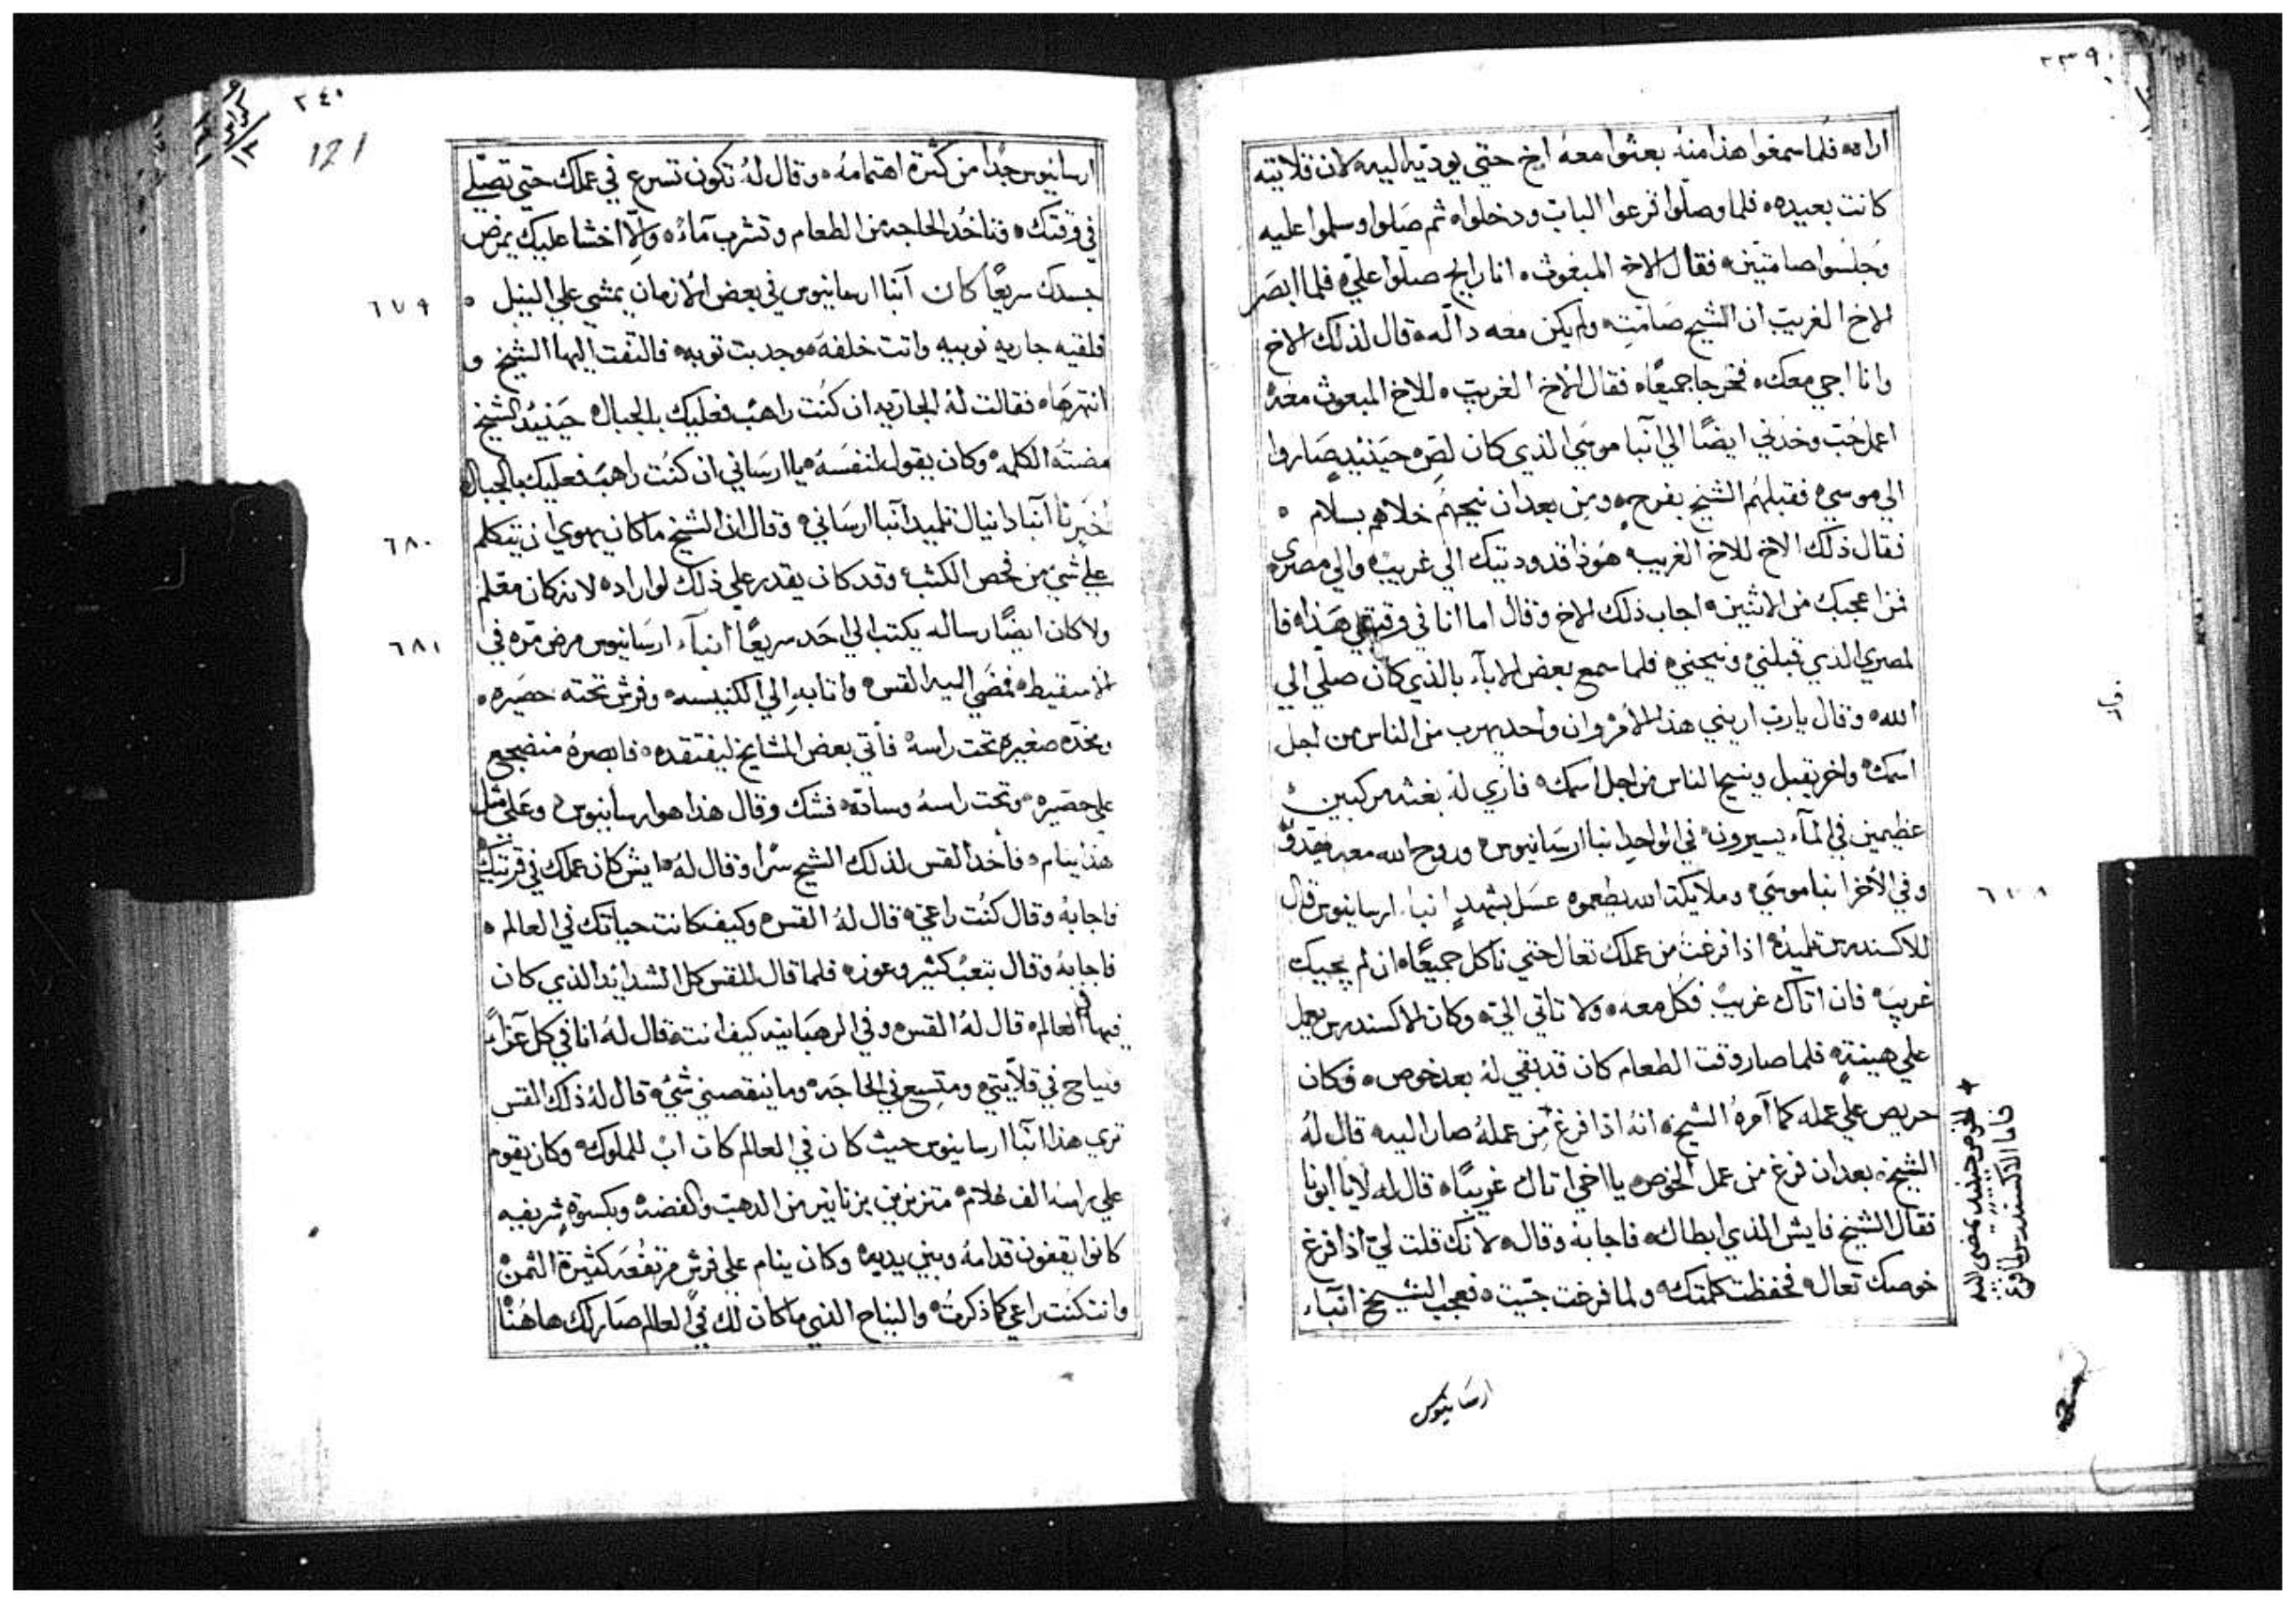 ٢٣٩
اراه فلما سمعوا هذا منه بعثوا معه اخ حتي يوديه اليه لان قلايته
كانت بعيده فلما وصلوا قرعوا الباب ودخلوا ثم صلوا وسلموا عليه
وجلسوا صامتين فقال الاخ المبعوث انا رايح صلوا علي فلما ابصر
الاخ الغريب ان الشيخ صامت ولم يكن معه داله قال لذلك الاخ
وانا اجي معك فخرجا جميعا فقال الاخ الغريب للاخ المبعوث معه
اعمل حب وخدني ايضا الي آنبا موسي الذي كان لص حينئيد صاروا
الي موسي فقبلهم الشيخ بفرح ومن بعد ان نيحهم خلاهم بسلام
فقال ذلك الاخ للاخ الغريب هوذا قد وديتك الي غريب والي مصري
فمن اعجبك من الاثنين اجاب ذلك الاخ وقال اما انا في وقتي هذا فا
لمصري الذي قبلني ونيحني فلما سمع بعض الابآء بالذي كان صلي الي
الله وقال يارب اريني هذا الامر وان واحد يهرب من الناس من اجل
اسمك واخر يقبل وينيح الناس من اجل اسمك فاري له بغته مركبين
عظيمين في المآء يسيرون في الواحد انبا ارسانيوس وروح الله معه
وفي الاخر انبا موسي وملايكة الله يطعموه عسل بشهد انبا ارسانيوس قال
٦٧٨
للاكسندرس تلميذه اذا فرغت من عملك تعال حتي ناكل جميعا ان لم يجيك
غريب فان اتاك غريب فكل معه ولا تاتي الي وكان الاكسندرس يعمل
علي هينة فلما صار وقت الطعام كان قد بقي له بعد خوص فكان
حريص علي عمله كما آمره الشيخ انه اذا فرغ من عمله صار اليه قال له
الشيخ بعد ان فرغ من عمل الخوص يااخي اتاك غريبا قال له لا يا ابونا
فقال الشيخ فايش الذي ابطاك فاجابه وقال لانك قلت لي اذا فرغ
خوصك تعال فحفظت كلمتك ولما فرغت جيت فعجب الشيخ انبآء
الخوص حينيد يمضي اليه
فاما الاكسندرس لما فرغ
ارسانيوس
٢٤٠
121
ارسانيوس جدا من كثرة اهتمامه وقال له تكون تسرع في عملك حتي تصلي
في وقتك وتاخد الحاجه من الطعام وتشرب مآءه والا اخشا عليك يمرض
جسدك سريعا كان آنبا ارسانيوس في بعض الازمان يمشي علي النيل
٦٧٩
فلقيه جاريه نوبيه واتت خلفه وجدبت توبه فالتفت اليها الشيخ و
انتهرها فقالت له الجاريه ان كنت راهب فعليك بالجبال حينيد الشيخ
مضته الكلمه وكان يقول لنفسه ياارساني ان كنت راهب فعليك بالجبال
خبرنا آنبا دانيال تلميد آنبا ارساني وقال ان الشيخ ما كان يهوي ان يتكلم
٦٨٠
علي شي من فحص الكتب وقد كان يقدر علي ذلك لو اراده لانه كان معلم
ولا كان ايضا رساله يكتب الي احد سريعا أنبآء ارسانيوس مرض مره في
٦٨١
الاسقيط فمضي اليه القس واتا به الي الكنيسه وفرش تحته حصيره
ومخده صغيره تحت راسه فأتي بعض المشايخ ليفتقده فابصره منضجع
علي حصيره وتحت راسه وسادة فشك وقال هذا هو ارسانيوس وعلي مثل
هذا ينام فأخد القس لذلك الشيخ سرا وقال له ايش كان عملك في قريتك
فاجابه وقال كنت راعي قال له القس وكيف كانت حياتك في العالم
فاجابه وقال بتعب كثير وعوز فلما قال للقس كل الشدايد الذي كان
فيها في العالم قال له القس وفي الرهبانيه كيف انت قال له انا في كل عزا
ونياح في قلايتي ومتسع في الحاجه وما ينقصني شي قال له ذلك القس
تري هذا آنبا ارسانيوس حيث كان في العالم كان اب للملوك وكان يقوم
علي راسه الف غلام متزينين بزنانير من الدهب والفضه وبكسوة شريفه
كانوا يقفون قدامه وبين يديه وكان ينام علي فرش مرتفعه كثيرة الثمن
وانت كنت راعي كما ذكرت والنياح الذي ما كان لك في العالم صار لك هاهنا